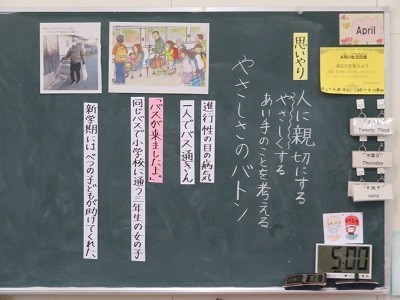 April
思いやり
人に親切にする
やさしくする
あい手のことを考える
やさしさのバトン
進行性の目の病気
一人でバス通きん
「バスが来ましたよ。」
同じバスで小学校に通う三年生の女の子
新学期にはべつの子どもが助けてくれた。
Twenty Third
木曜日
Thursday
5:00